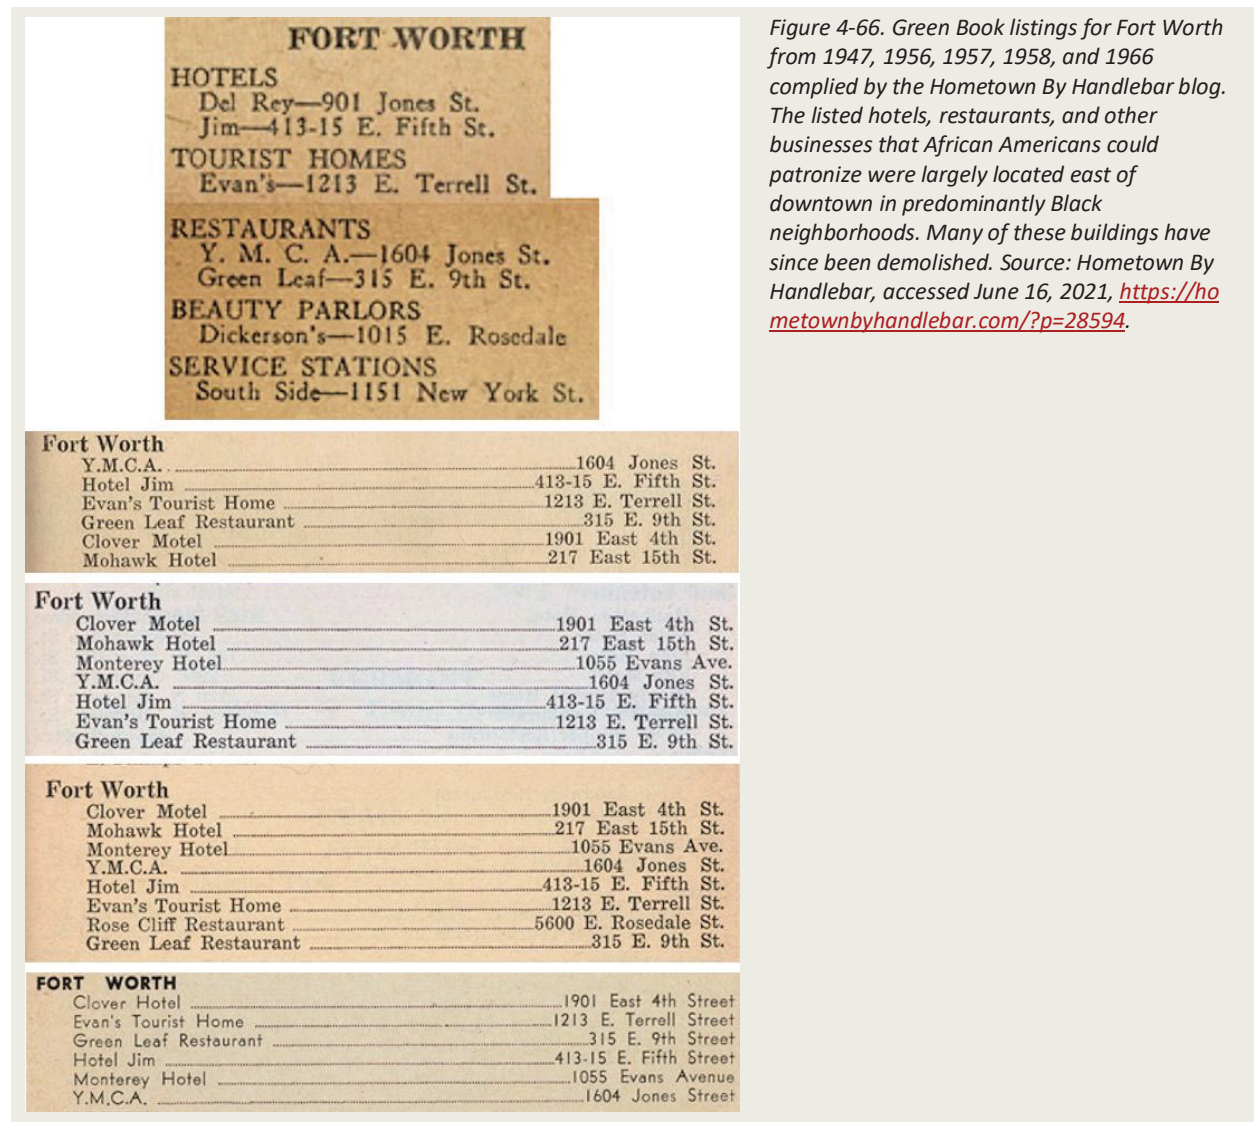 FORT WORTH
HOTELS
Del Rey—901 Jones St.
Jim—413-15 E. Fifth St.
TOURIST HOMES
Evan's—1213 E. Terrell St.
RESTAURANTS
Y. M. C. A.—1604 Jones St.
Green Leaf—315 E. 9th St.
BEAUTY PARLORS
Dickerson's—1015 E. Rosedale
SERVICE STATIONS
South Side—1151 New York St.
Fort Worth
Y.M.C.A. 1604 Jones St.
Hotel Jim 413-15 E. Fifth St.
Evan's Tourist Home 1213 E. Terrell St.
Green Leaf Restaurant 315 E. 9th St.
Clover Motel 1901 East 4th St.
Mohawk Hotel 217 East 15th St.
Fort Worth
Clover Motel 1901 East 4th St.
Mohawk Hotel 217 East 15th St.
Monterey Hotel 1055 Evans Ave.
Y.M.C.A. 1604 Jones St.
Hotel Jim 413-15 E. Fifth St.
Evan's Tourist Home 1213 E. Terrell St.
Green Leaf Restaurant 315 E. 9th St.
Fort Worth
Clover Motel 1901 East 4th St.
Mohawk Hotel 217 East 15th St.
Monterey Hotel 1055 Evans Ave.
Y.M.C.A. 1604 Jones St.
Hotel Jim 413-15 E. Fifth St.
Evan's Tourist Home 1213 E. Terrell St.
Rose Cliff Restaurant 5600 E. Rosedale St.
Green Leaf Restaurant 315 E. 9th St.
FORT WORTH
Clover Hotel 1901 East 4th Street
Evan's Tourist Home 1213 E. Terrell Street
Green Leaf Restaurant 315 E. 9th Street
Hotel Jim 413-15 E. Fifth Street
Monterey Hotel 1055 Evans Avenue
Y.M.C.A. 1604 Jones Street
Figure 4-66. Green Book listings for Fort Worth
from 1947, 1956, 1957, 1958, and 1966
complied by the Hometown By Handlebar blog.
The listed hotels, restaurants, and other
businesses that African Americans could
patronize were largely located east of
downtown in predominantly Black
neighborhoods. Many of these buildings have
since been demolished. Source: Hometown By
Handlebar, accessed June 16, 2021, https://ho
metownbyhandlebar.com/?p=28594.